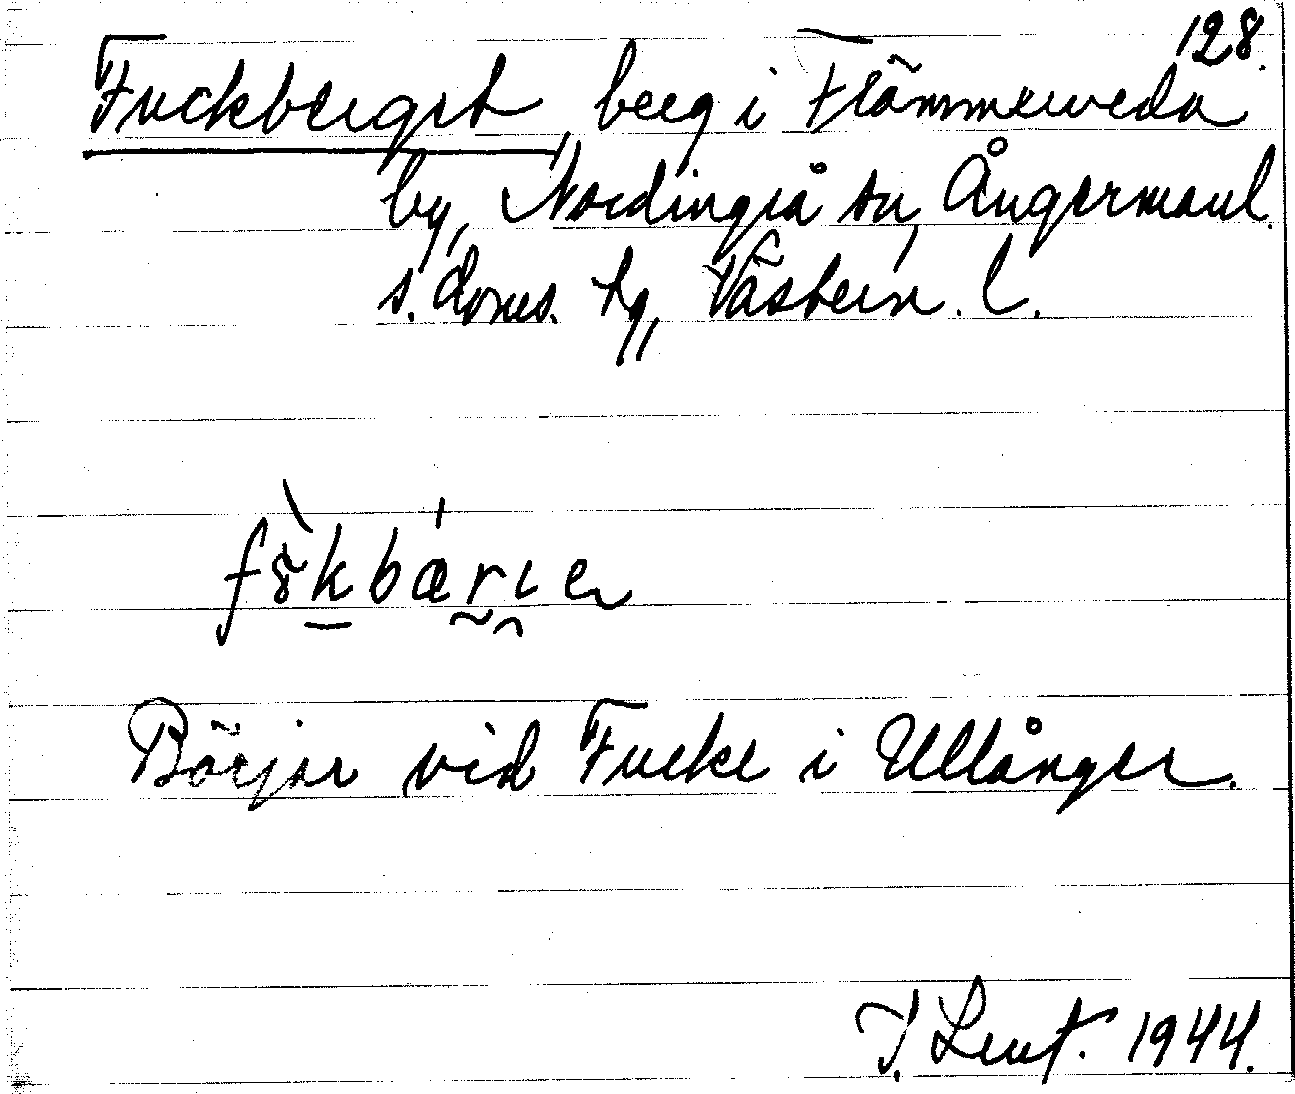 128.
Fuckberget, berg i Flämmerveda
by, Nordingrå sn, Ångermanl.
s. doms. hg, Västern. l.
Börjar vid Fucke i Ullånger.
J. Leuf. 1944.